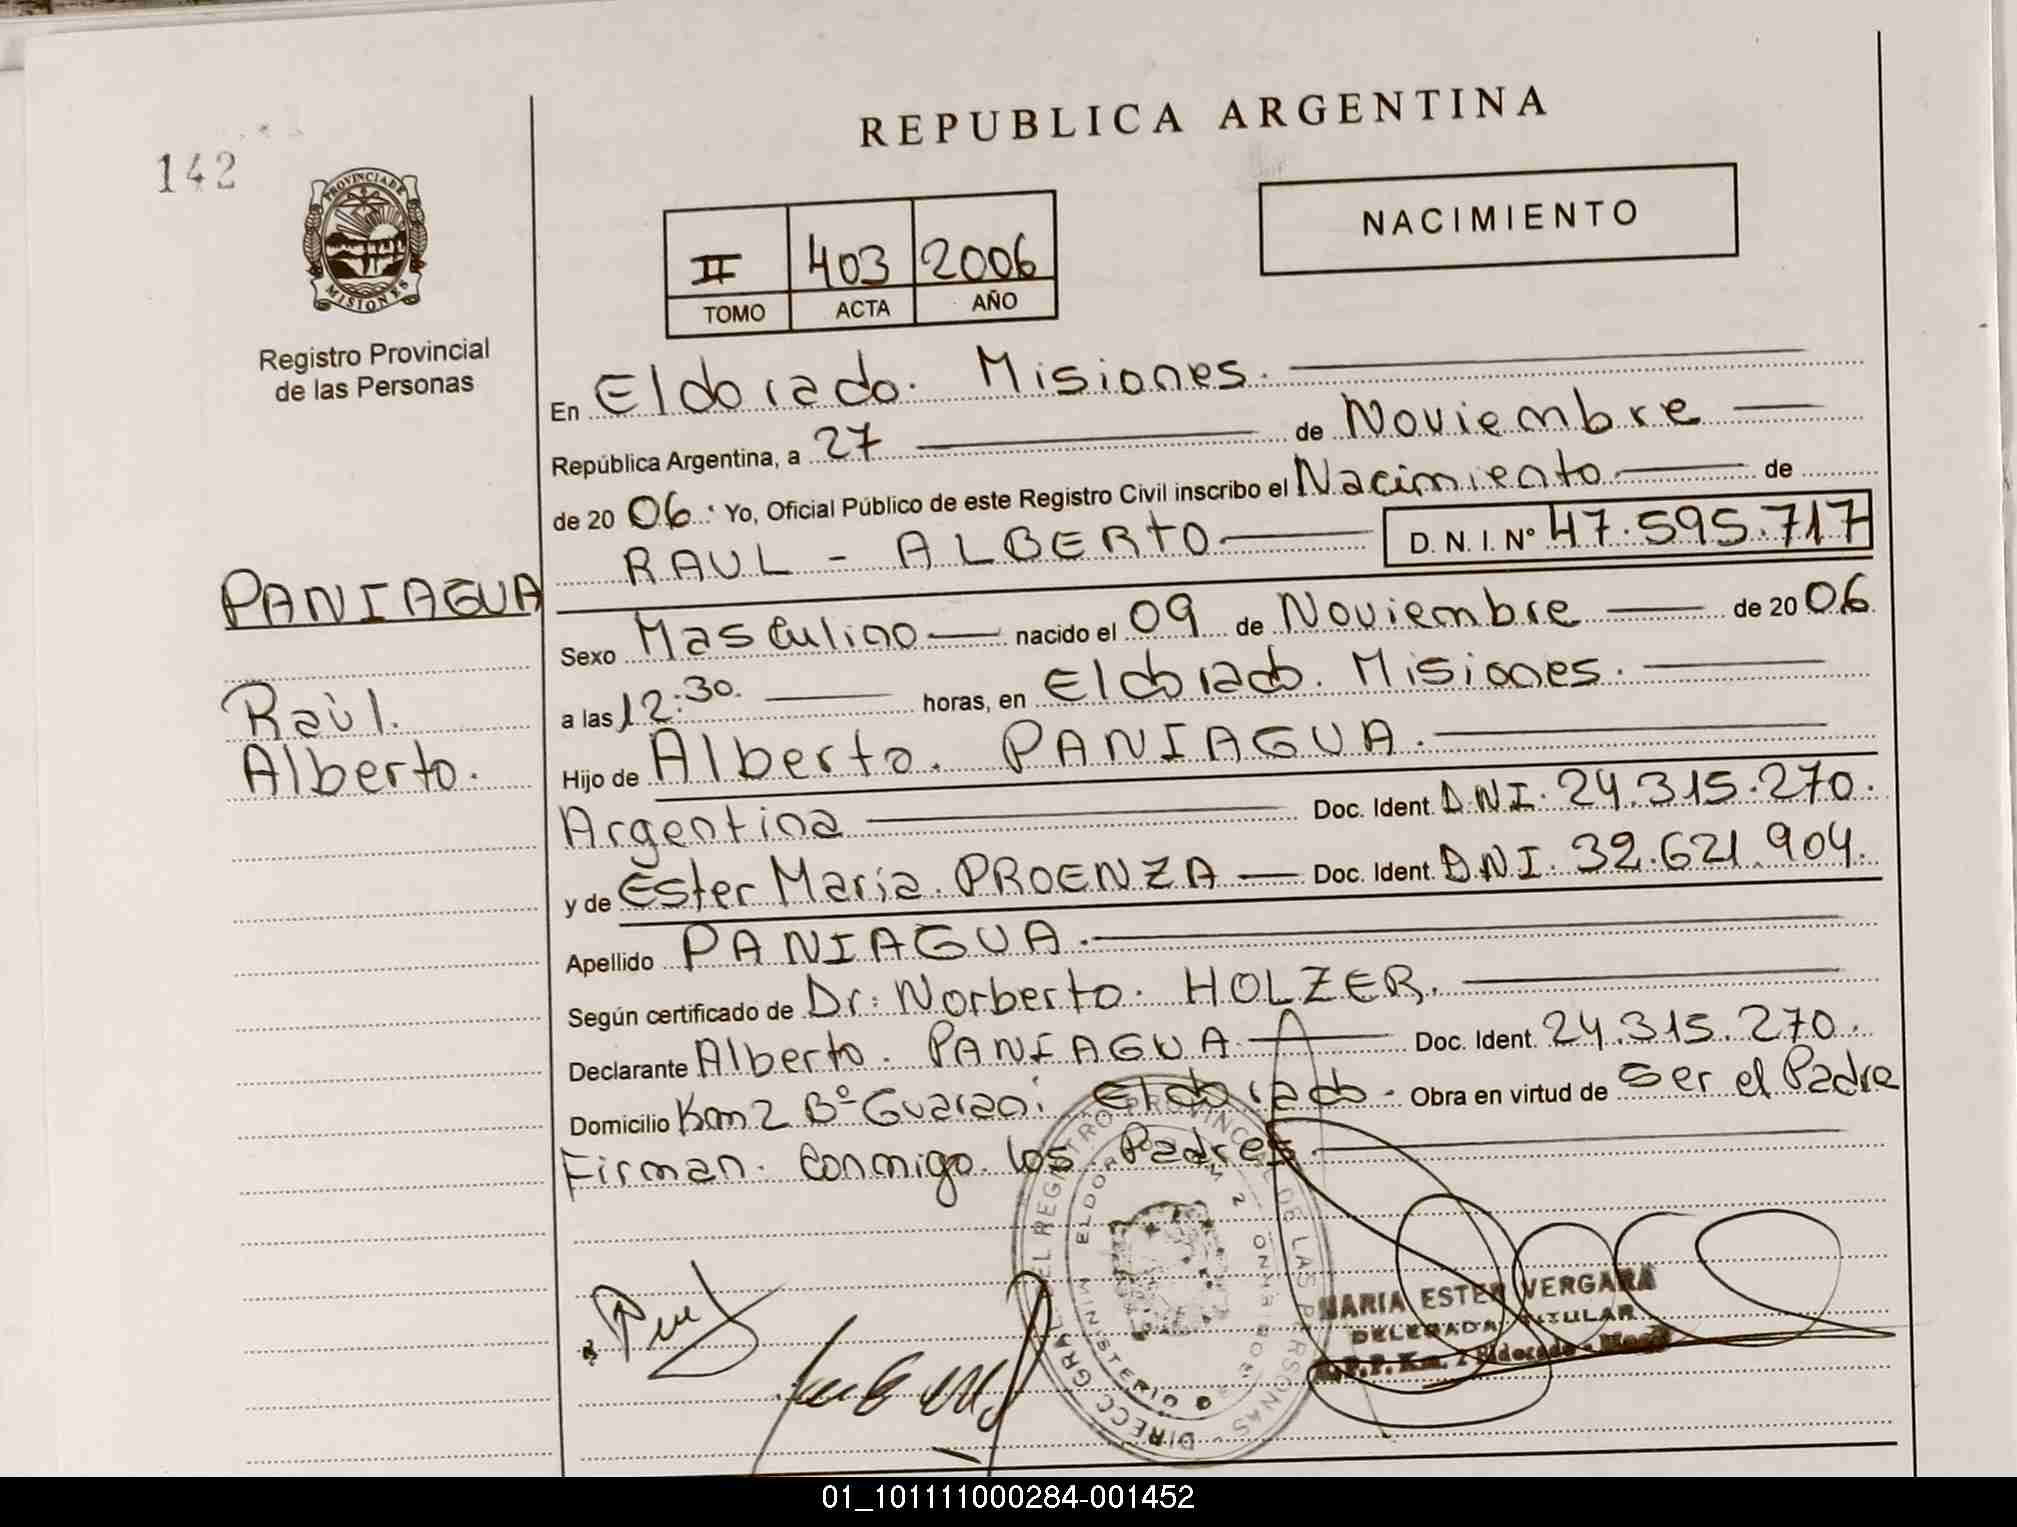 REPUBLICA ARGENTINA
142
PROVINCIA DE
MISIONES
Registro Provincial
de las Personas
NACIMIENTO
II 403 2006
TOMO ACTA AÑO
En Eldorado. Misiones.
República Argentina, a 27 de Noviembre
de 2006. Yo, Oficial Público de este Registro Civil inscribo el Nacimiento de
RAUL - ALBERTO D.N.I. Nº 47.595.717
PANIAGUA
Sexo Masculino nacido el 09 de Noviembre de 2006
Raùl.
a las 12:30. horas, en Eldorado. Misiones.
Alberto.
Hijo de Alberto. PANIAGUA.
Argentina Doc. Ident. D.N.I. 24.315.270.
y de Ester Maria. PROENZA Doc. Ident. D.N.I. 32.621.904.
Apellido PANIAGUA.
Según certificado de Dr: Norberto. HOLZER.
Declarante Alberto. PANIAGUA Doc. Ident. 24.315.270.
Domicilio Km 2 Bº Guarani. Eldorado. Obra en virtud de Ser el Padre
Firman. Conmigo. los. Padres
DIRECC GRAL DEL REGISTRO PROVINCIAL DE LAS PERSONAS
MINISTERIO
MARIA ESTER VERGARA
DELEGADA TITULAR
Eldorado
01_101111000284-001452